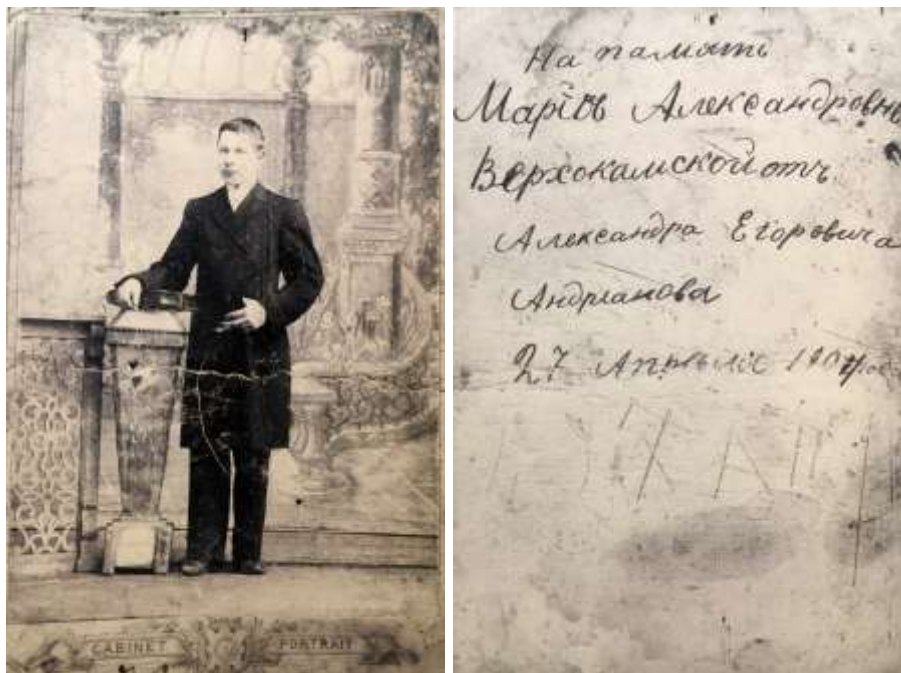 CABINET PORTRAIT
На память
Маріѣ Александровнѣ
Верхокамской отъ
Александра Егоровича
Андріанова
27 Апрѣля